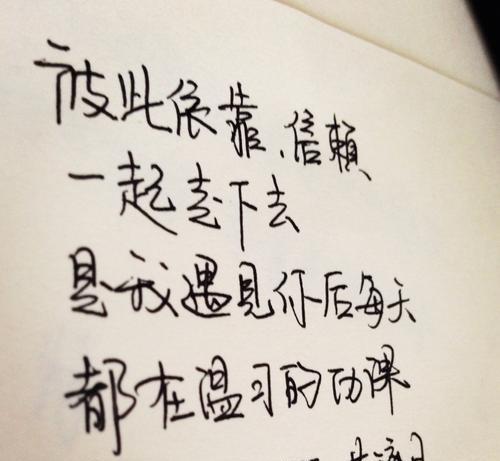 彼此依靠、信賴
一起走下去
是我遇見你后每天
都在温习的功课